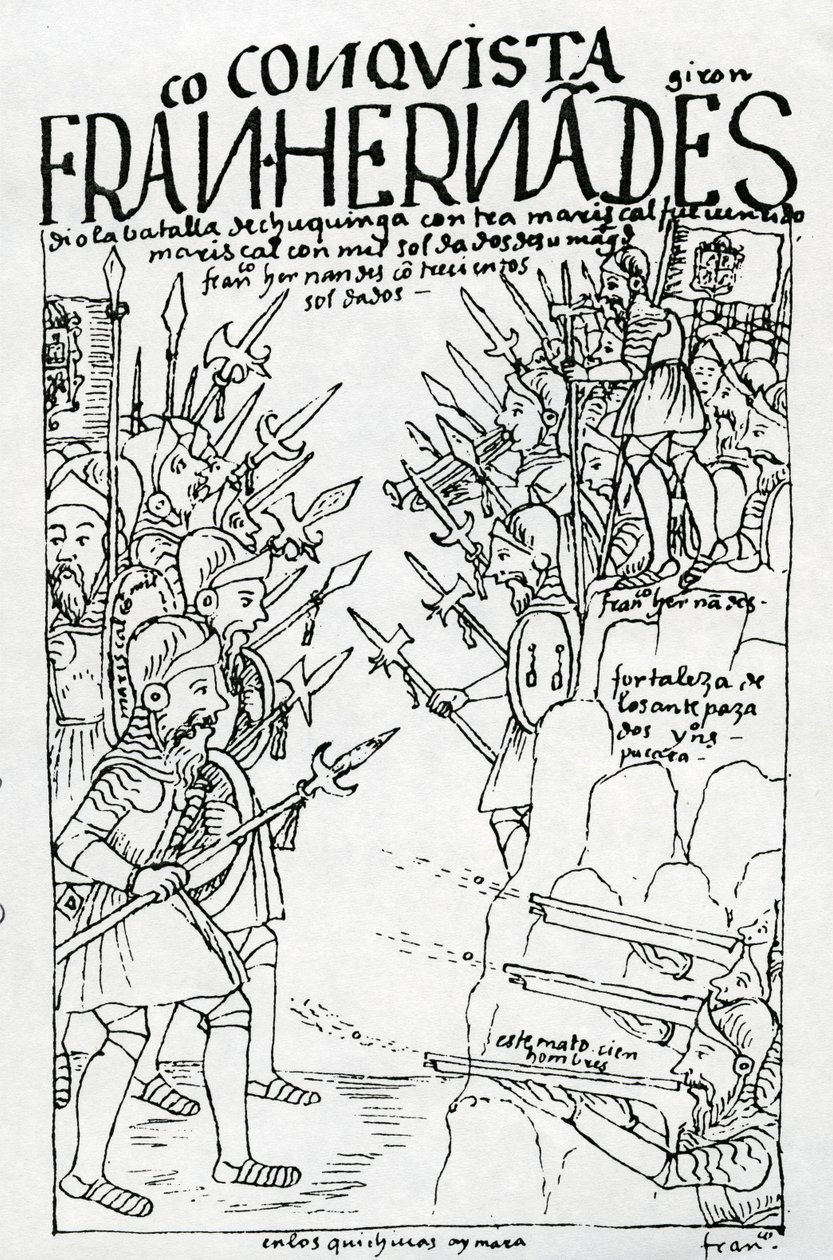 CONQVISTA
co
giron
FRAN·HERNÃDES
dio la batalla de chuquinga contra mariscal fue uencido
mariscal con mil soldados de su mag.d
fran.co hernandes cõ trecientos
soldados —
mariscal cõ mil
fran.co hernãdes -
fortaleza de
los ante paza
dos yns -
pucara -
este mato cien
hombres
en los quichiuas aymara
fran.co